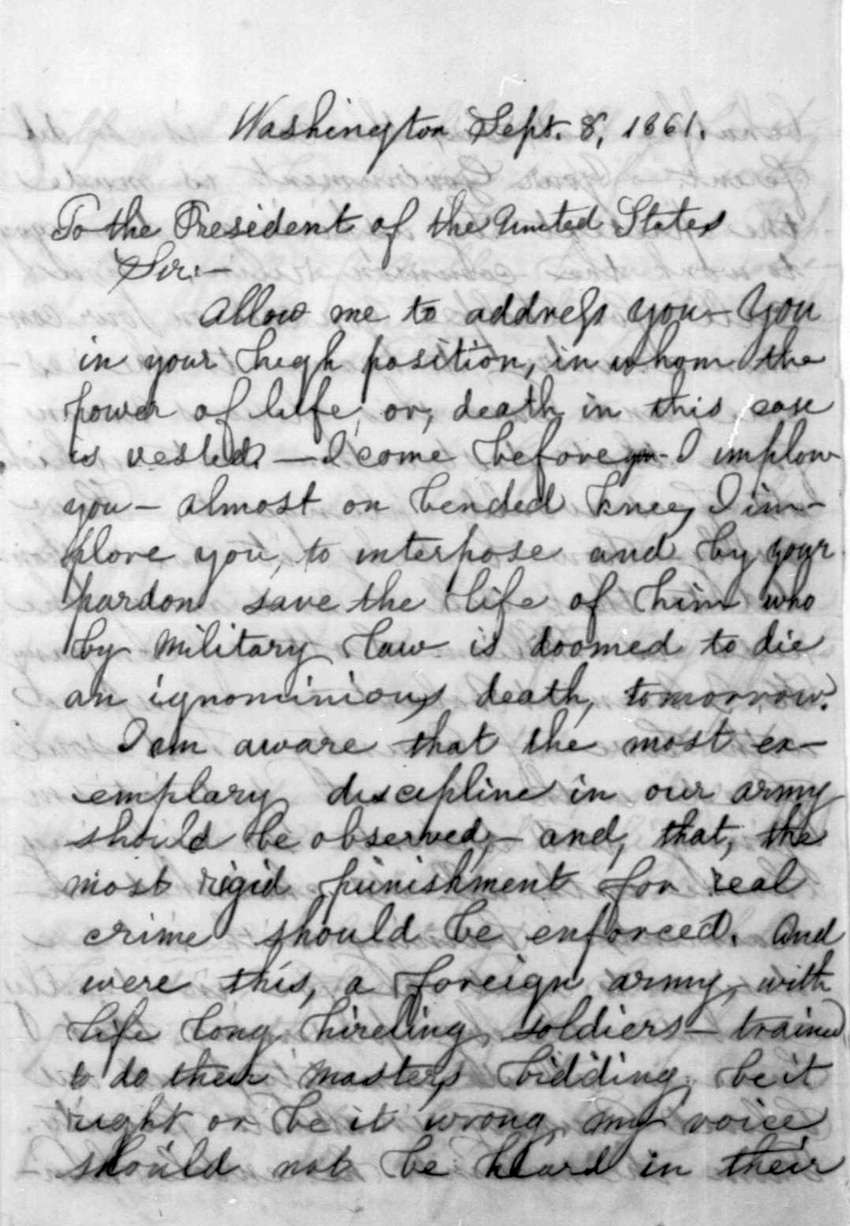 Washington Sept. 8, 1861.
To the President of the United States
Sir:—
Allow me to address you— You
in your high position, in whom the
power of life, or, death, in this case
is vested. — I come before you - I implore
you — almost on bended knee, I im-
plore you, to interpose and by your
pardon save the life of him who
by military law is doomed to die
an ignominious death, tomorrow.
I am aware that the most ex-
emplary discipline in our army
should be observed, — and, that, the
most rigid punishment for real
crime should be enforced. And
were this, a foreign army, with
life long hireling soldiers — trained
to do their masters bidding, be it
right or be it wrong, my voice
should not be heard in their